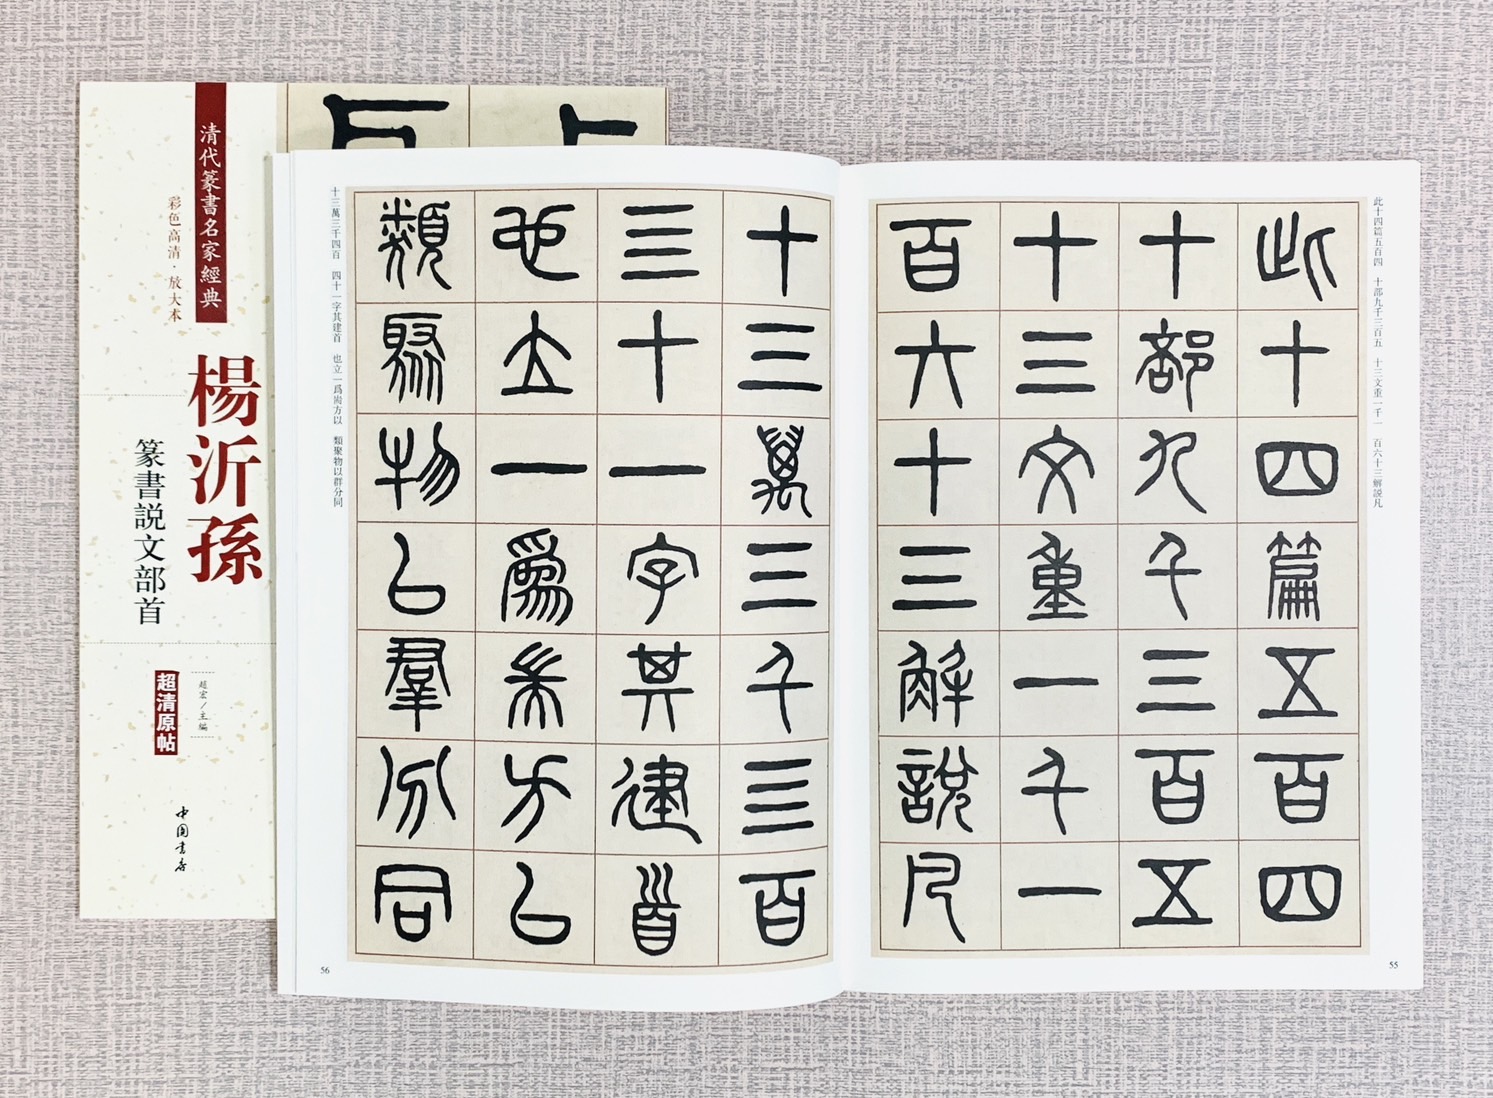 清代篆書名家經典
彩色高清·放大本
楊沂孫
篆書説文部首
超清原帖
趙宏/主編
中国書店
此十四篇五百四
十部九千三百五
十三文重一千一
百六十三解説凡
此十四篇五百四 十部九千三百五 十三文重一千一 百六十三解説凡
55
十三萬三千四百
三十一字其建首
也立一爲耑方以
類聚物以羣分同
十三萬三千四百 四十一字其建首 也立一爲耑方以 類聚物以群分同
56